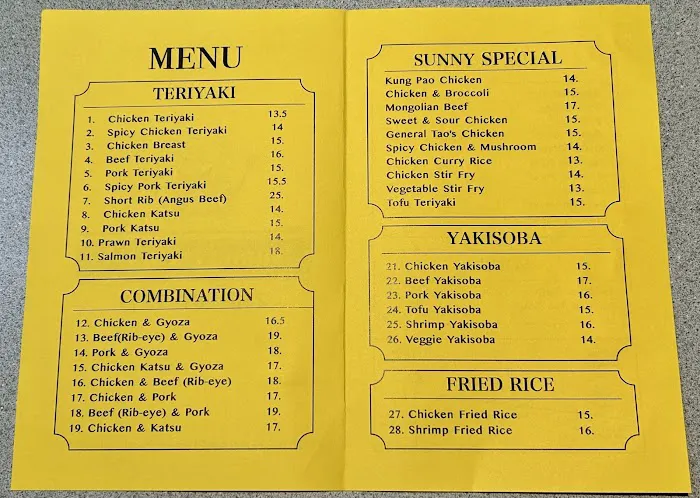 MENU
TERIYAKI
1. Chicken Teriyaki 13.5
2. Spicy Chicken Teriyaki 14
3. Chicken Breast 15.
4. Beef Teriyaki 16.
5. Pork Teriyaki 15.
6. Spicy Pork Teriyaki 15.5
7. Short Rib (Angus Beef) 25.
8. Chicken Katsu 14.
9. Pork Katsu 15.
10. Prawn Teriyaki 14.
11. Salmon Teriyaki 18.
COMBINATION
12. Chicken & Gyoza 16.5
13. Beef(Rib-eye) & Gyoza 19.
14. Pork & Gyoza 18.
15. Chicken Katsu & Gyoza 17.
16. Chicken & Beef (Rib-eye) 18.
17. Chicken & Pork 17.
18. Beef (Rib-eye) & Pork 19.
19. Chicken & Katsu 17.
SUNNY SPECIAL
Kung Pao Chicken 14.
Chicken & Broccoli 15.
Mongolian Beef 17.
Sweet & Sour Chicken 15.
General Tao's Chicken 15.
Spicy Chicken & Mushroom 14.
Chicken Curry Rice 13.
Chicken Stir Fry 14.
Vegetable Stir Fry 13.
Tofu Teriyaki 15.
YAKISOBA
21. Chicken Yakisoba 15.
22. Beef Yakisoba 17.
23. Pork Yakisoba 16.
24. Tofu Yakisoba 15.
25. Shrimp Yakisoba 16.
26. Veggie Yakisoba 14.
FRIED RICE
27. Chicken Fried Rice 15.
28. Shrimp Fried Rice 16.